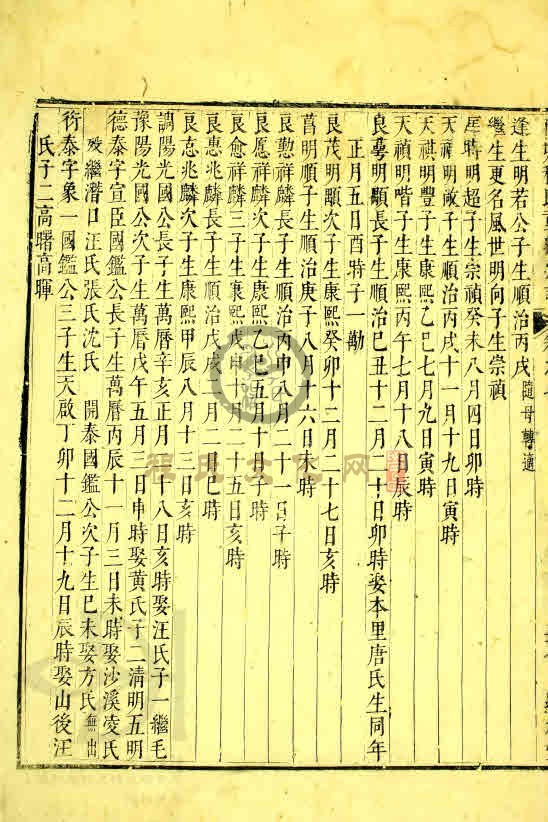 逢生明若公子生順治丙戌隨母轉適
繼生更名風世明向子生崇禎
時明超子生宗禎癸未八月四日卯時
祥明啟子生順治丙戌十一月十九日寅時
天祺明豐子生康熙乙巳七月九日寅時
天禎明喈子生康熙丙午七月十八日辰時
良謩明顯長子生順治己丑十二月二十日卯時娶本里唐氏生同年
正月五日酉時子一勤
良茂明顯次子生康熙癸卯十二月二十七日亥時
菖明順子生順治庚子八月十六日未時
良懃祥麟長子生順治丙申八月二十一日子時
良愿祥麟次子生康熙乙巳五月十日子時
良愈祥麟三子生康熙戊申十月二十五日亥時
良惠兆麟長子生順治戊戌二月二日巳時
良志兆麟次子生康熙甲辰八月十三日亥時
調陽光國公長子生萬曆辛亥正月二十八日亥時娶汪氏子一繼毛
豫陽光國公次子生萬曆戊午五月三日申時娶黃氏子二清明五明
德泰字宣臣國鑑公長子生萬曆丙辰十一月三日未時娶沙溪凌氏
歿繼潛口汪氏張氏沈氏 開泰國鑑公次子生己未娶方氏無出
衍泰字象一國鑑公三子生天啟丁卯十二月十九日辰時娶山後汪
氏子二高曙高暉
程氏文化网